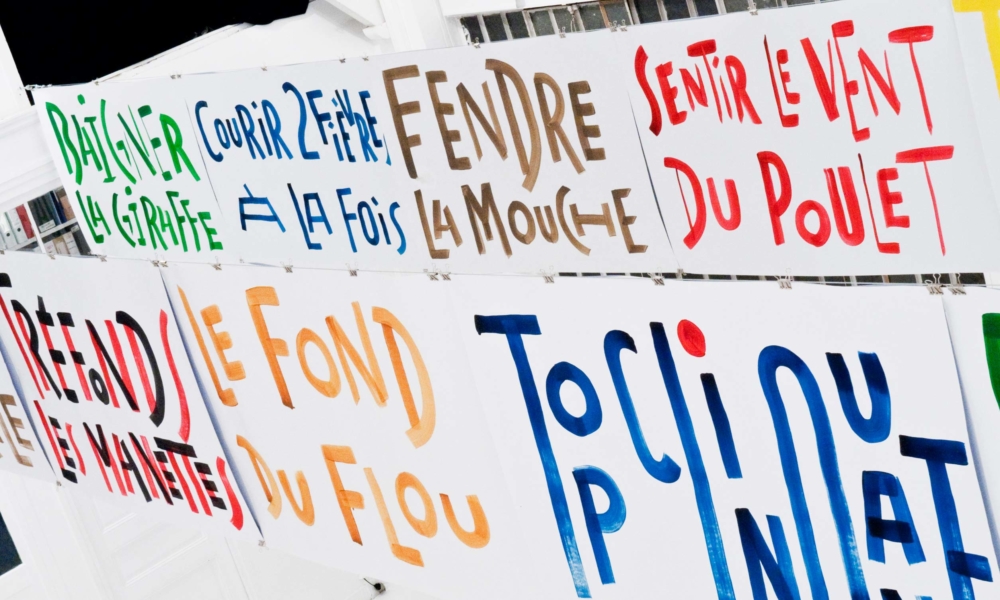 BAIGNER
LA GIRAFFE
COURIR 2 FIÈVRE,
À LA FOIS
FENDRE
LA MOUCHE
SENTIR LE VENT
DU POULET
TRÉFONDS
LES MANETTES
LE FOND
DU FLOU